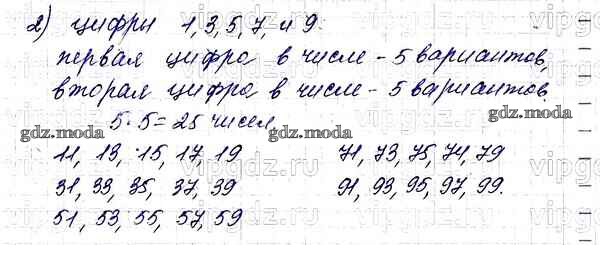 2) цифры 1, 3, 5, 7, и 9.
первая цифра в числе - 5 вариантов,
вторая цифра в числе - 5 вариантов.
5 · 5 = 25 чисел
gdz.moda gdz.moda gdz.moda
11, 13, 15, 17, 19 71, 73, 75, 74, 79
31, 33, 35, 37, 39 91, 93, 95, 97, 99.
51, 53, 55, 57, 59